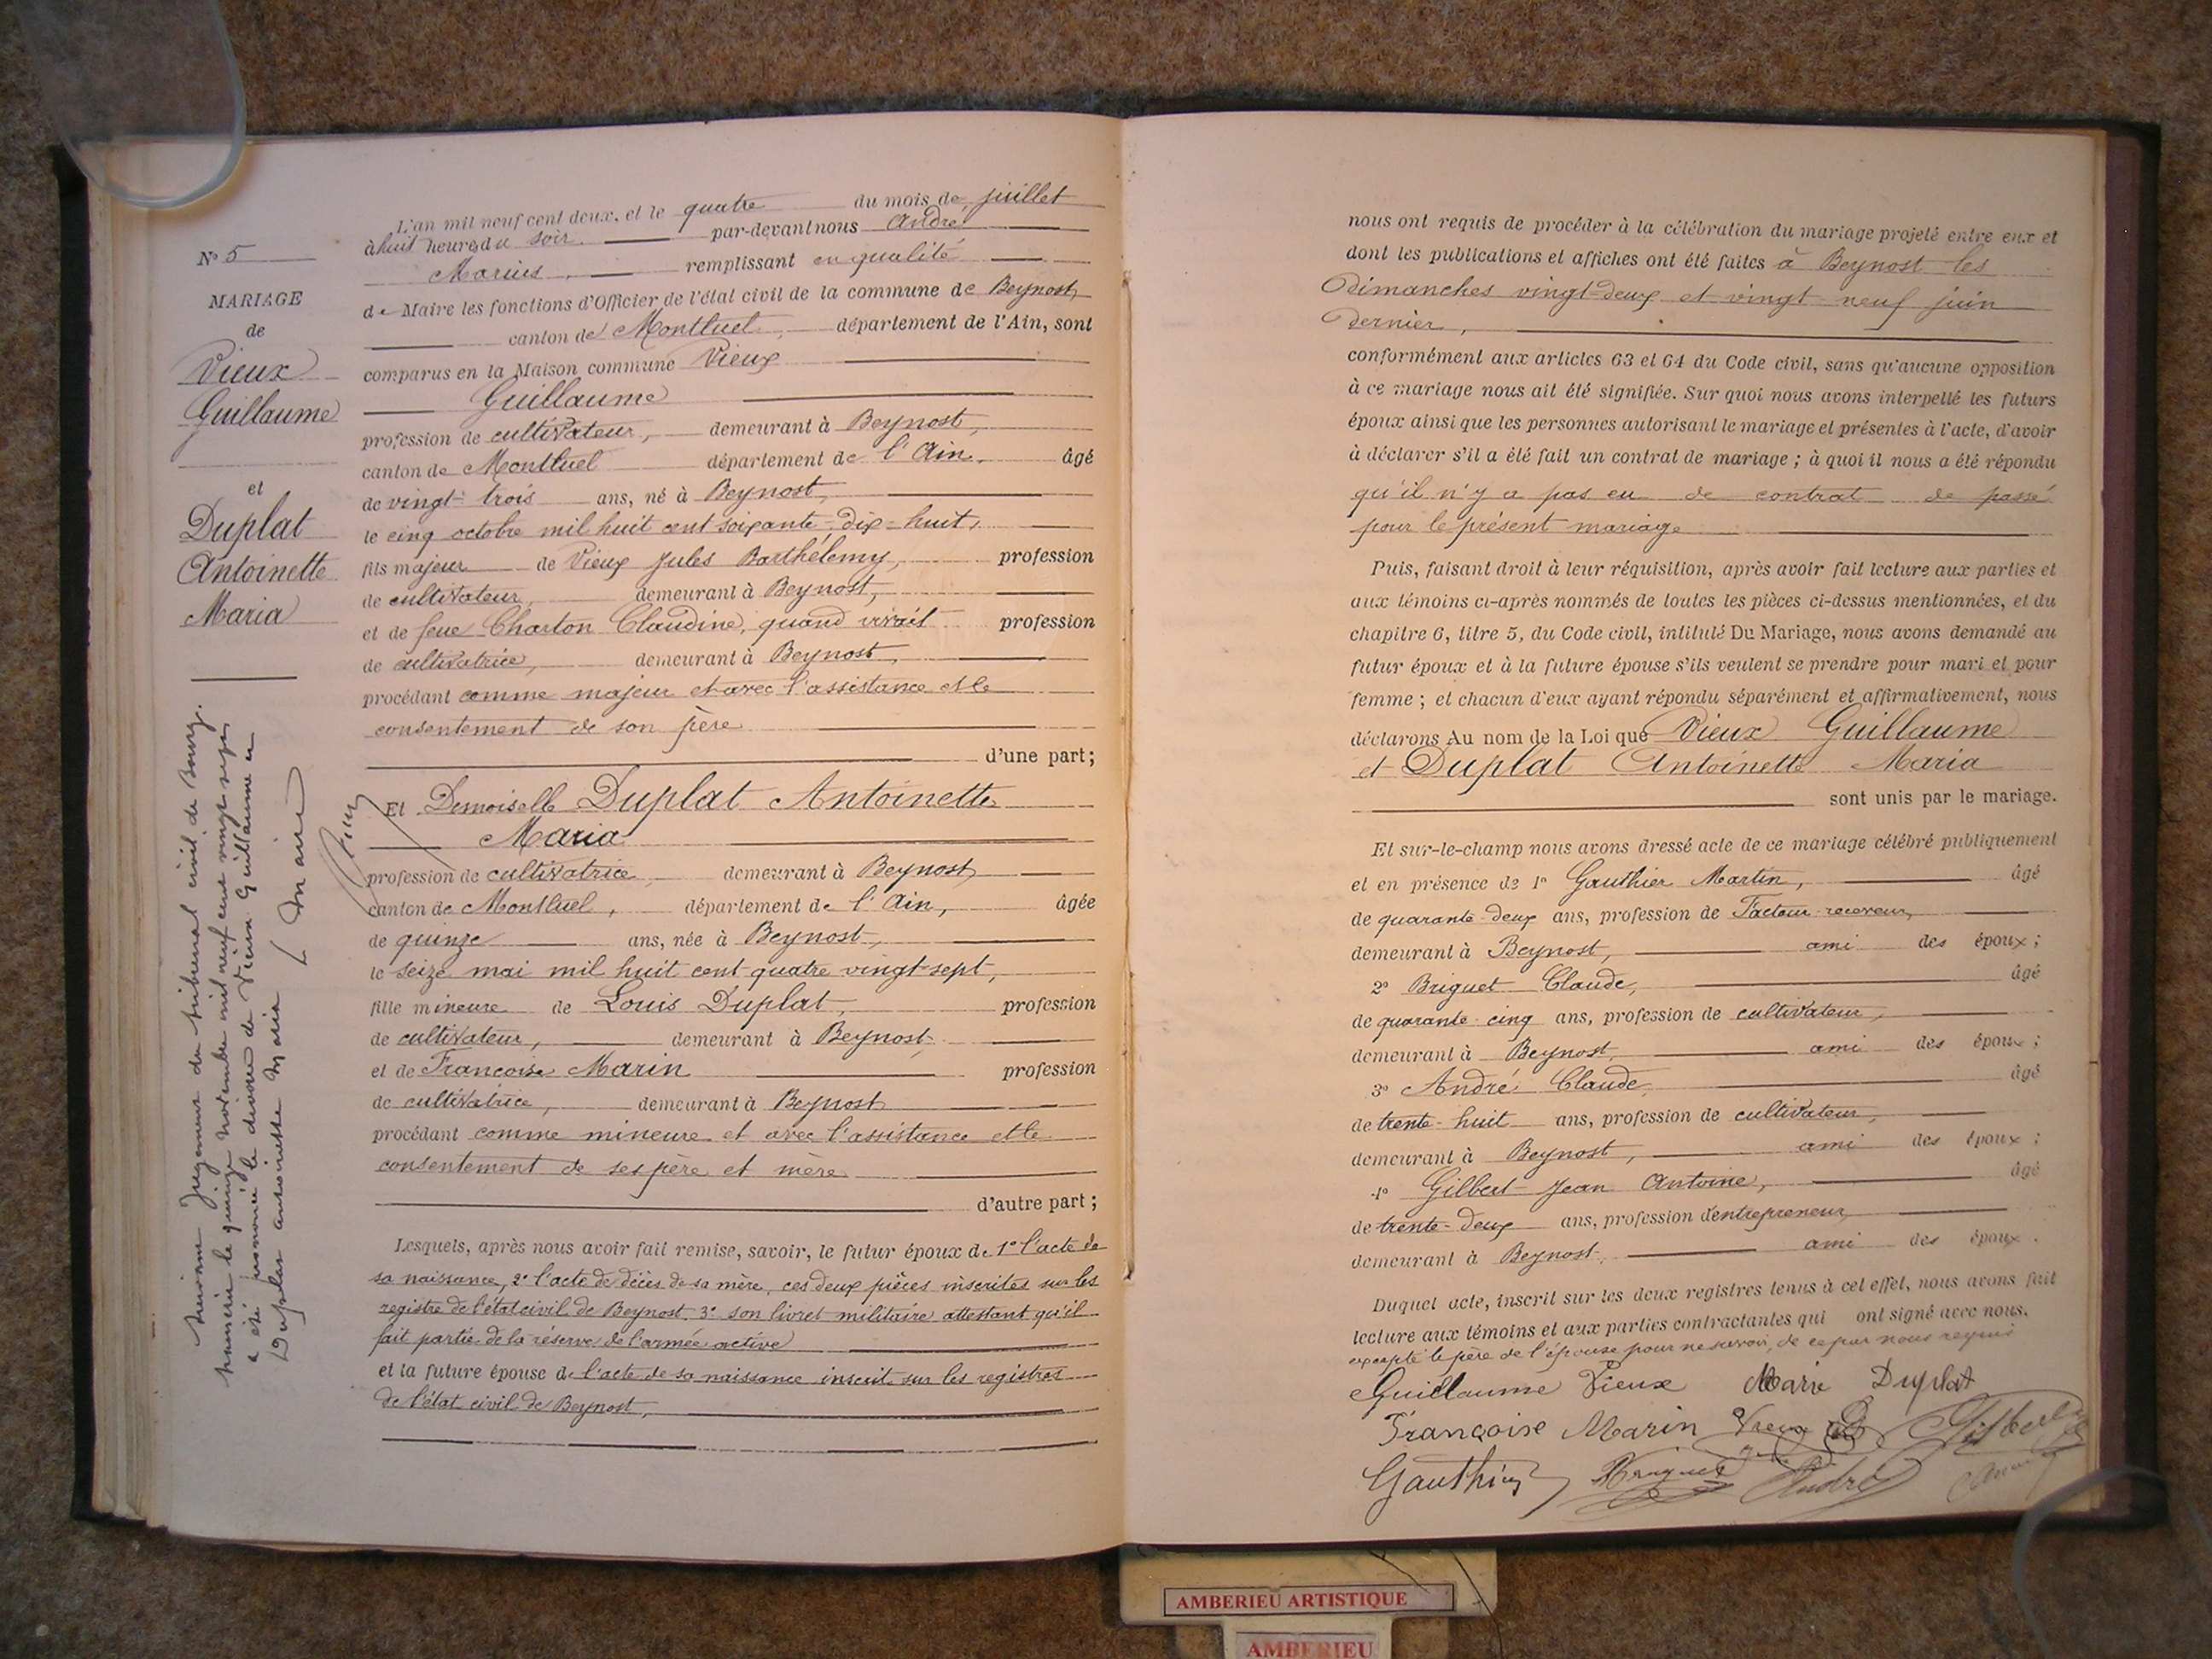 N° 5
MARIAGE
de
Vieux
Guillaume
et
Duplat
Antoinette
Maria
Suivant Jugement du tribunal civil de Bourg.
numéro le quinze Novembre mil neuf cent vingt sept
a été prononcé le divorce de Vieux Guillaume et
Duplat Antoinette Maria Le Maire
L'an mil neuf cent deux, et le quatre du mois de juillet
à huit heures du soir par-devant nous André
Marius, remplissant en qualité
de Maire les fonctions d'Officier de l'état civil de la commune de Beynost,
canton de Montluel, département de l'Ain, sont
comparus en la Maison commune Vieux
Guillaume
profession de cultivateur, demeurant à Beynost,
canton de Montluel département de l'Ain, âgé
de vingt-trois ans, né à Beynost,
le cinq octobre mil huit cent soixante-dix-huit,
fils majeur de Vieux Jules Barthélemy, profession
de cultivateur, demeurant à Beynost,
et de feue Charton Claudine, quand vivait profession
de cultivatrice, demeurant à Beynost,
procédant comme majeur et avec l'assistance et le
consentement de son père
d'une part;
Et Demoiselle Duplat Antoinette
Maria
profession de cultivatrice demeurant à Beynost,
canton de Montluel, département de l'Ain, âgée
de quinze ans, née à Beynost,
le seize mai mil huit cent quatre vingt-sept,
fille mineure de Louis Duplat, profession
de cultivateur, demeurant à Beynost,
et de Françoise Marin profession
de cultivatrice, demeurant à Beynost
procédant comme mineure et avec l'assistance et le
consentement de ses père et mère
d'autre part;
Lesquels, après nous avoir fait remise, savoir, le futur époux de 1° l'acte de
sa naissance, 2° l'acte de décès de sa mère, ces deux pièces inscrites sur les
registre de l'état civil de Beynost. 3° son livret militaire attestant qu'il
fait partie de la réserve de l'armée active
et la future épouse de l'acte de sa naissance inscrit sur les registres
de l'état civil de Beynost,
nous ont requis de procéder à la célébration du mariage projeté entre eux et
dont les publications et affiches ont été faites à Beynost les
dimanches vingt-deux et vingt neuf juin
dernier,
conformément aux articles 63 et 64 du Code civil, sans qu'aucune opposition
à ce mariage nous ait été signifiée. Sur quoi nous avons interpellé les futurs
époux ainsi que les personnes autorisant le mariage et présentes à l'acte, d'avoir
à déclarer s'il a été fait un contrat de mariage; à quoi il nous a été répondu
qu'il n'y a pas eu de contrat de passé
pour le présent mariage
Puis, faisant droit à leur réquisition, après avoir fait lecture aux parties et
aux témoins ci-après nommés de toutes les pièces ci-dessus mentionnées, et du
chapitre 6, titre 5, du Code civil, intitulé Du Mariage, nous avons demandé au
futur époux et à la future épouse s'ils veulent se prendre pour mari et pour
femme; et chacun d'eux ayant répondu séparément et affirmativement, nous
déclarons Au nom de la Loi que Vieux Guillaume
et Duplat Antoinette Maria
sont unis par le mariage.
Et sur-le-champ nous avons dressé acte de ce mariage célébré publiquement
et en présence de 1° Gauthier Martin, âgé
de quarante-deux ans, profession de Facteur-receveur,
demeurant à Beynost, ami des époux;
2° Briguet Claude, âgé
de quarante-cinq ans, profession de cultivateur,
demeurant à Beynost, ami des époux;
3° André Claude, âgé
de trente-huit ans, profession de cultivateur,
demeurant à Beynost, ami des époux;
4° Gilbert Jean Antoine, âgé
de trente-deux ans, profession d'entrepreneur,
demeurant à Beynost, ami des époux.
Duquel acte, inscrit sur les deux registres tenus à cet effet, nous avons fait
lecture aux témoins et aux parties contractantes qui ont signé avec nous.
excepté le père de l'épouse pour ne savoir, de ce par nous requis
Guillaume Vieux Marie Duplat
Françoise Marin Vieux Gilbert
Gauthier Briguet André
AMBERIEU ARTISTIQUE
AMBERIEU